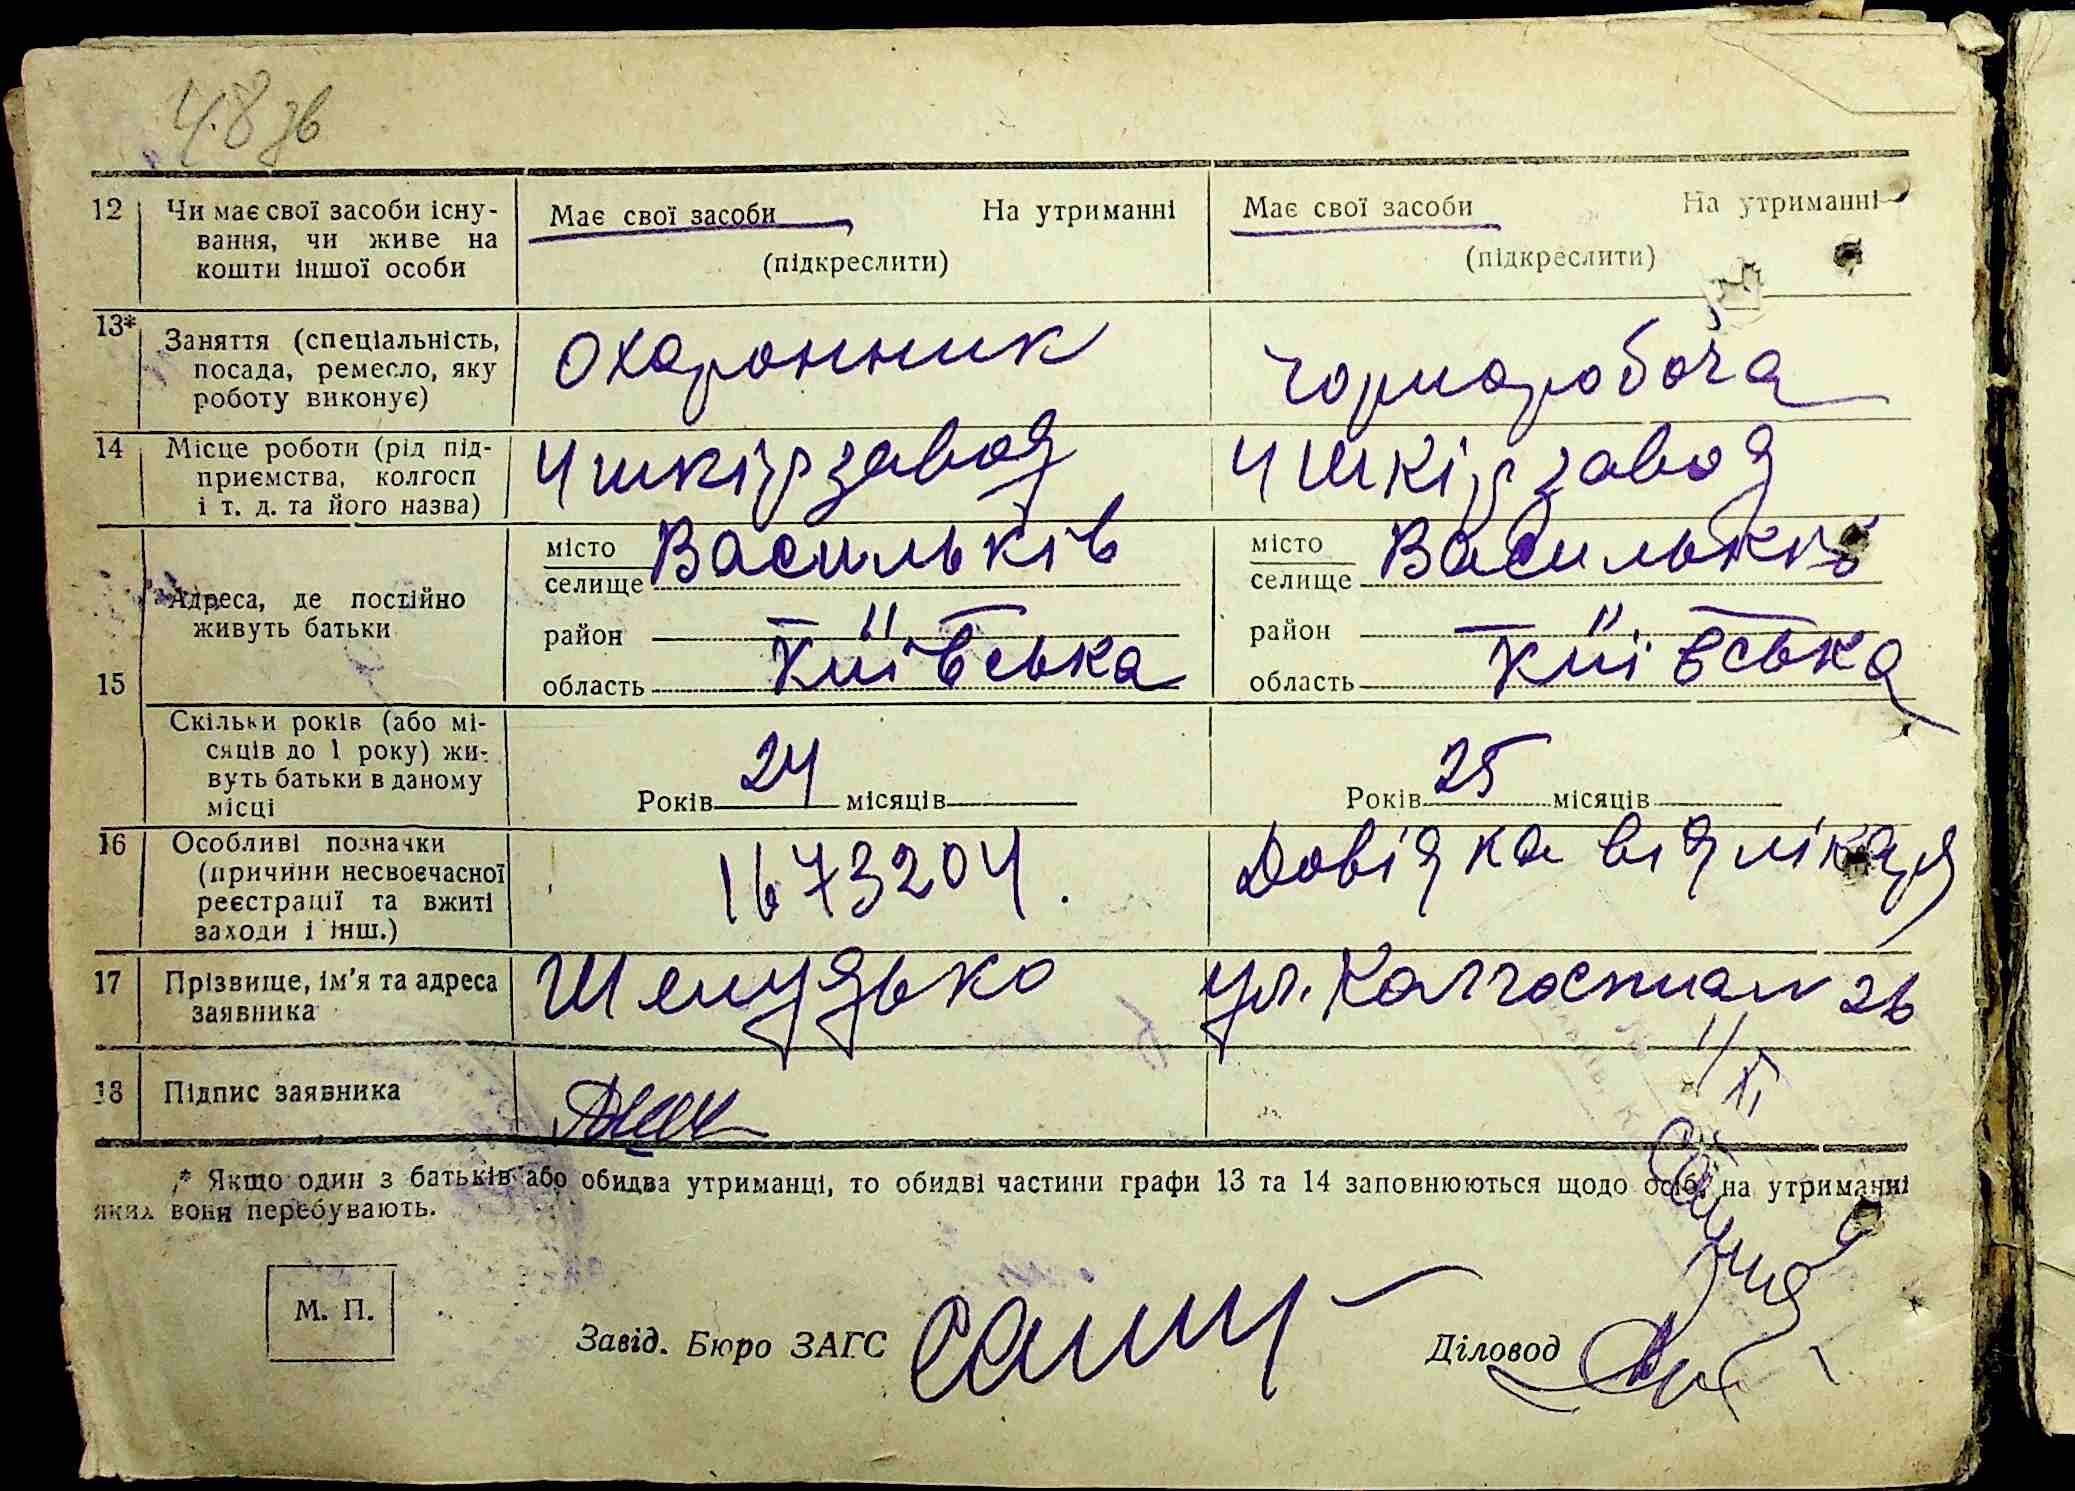 48 зв
12 Чи має свої засоби існу- Має свої засоби На утриманні Має свої засоби На утриманні
вання, чи живе на
кошти іншої особи (підкреслити) (підкреслити)
13* Заняття (спеціальність, охоронник чорноробоча
посада, ремесло, яку
роботу виконує)
14 Місце роботи (рід під- Ч шкірзавод Ч шкірзавод
приємства, колгосп
і т. д. та його назва)
15 Адреса, де постійно живуть батьки
місто Васильків місто Васильків
селище селище
район — район —
область Київська область Київська
Скільки років (або мі-
сяців до 1 року) жи-
вуть батьки в даному
місці
Років 24 місяців Років 25 місяців
16 Особливі позначки 1673204. Довідка від лікаря
(причини несвоєчасної
реєстрації та вжиті
заходи і інш.)
17 Прізвище, ім'я та адреса Шелудько ул. Колгоспная 26
заявника
11/XI
18 Підпис заявника
* Якщо один з батьків або обидва утриманці, то обидві частини графи 13 та 14 заповнюються щодо осіб, на утриманні
яких вони перебувають.
М. П.
Завід. Бюро ЗАГС Діловод